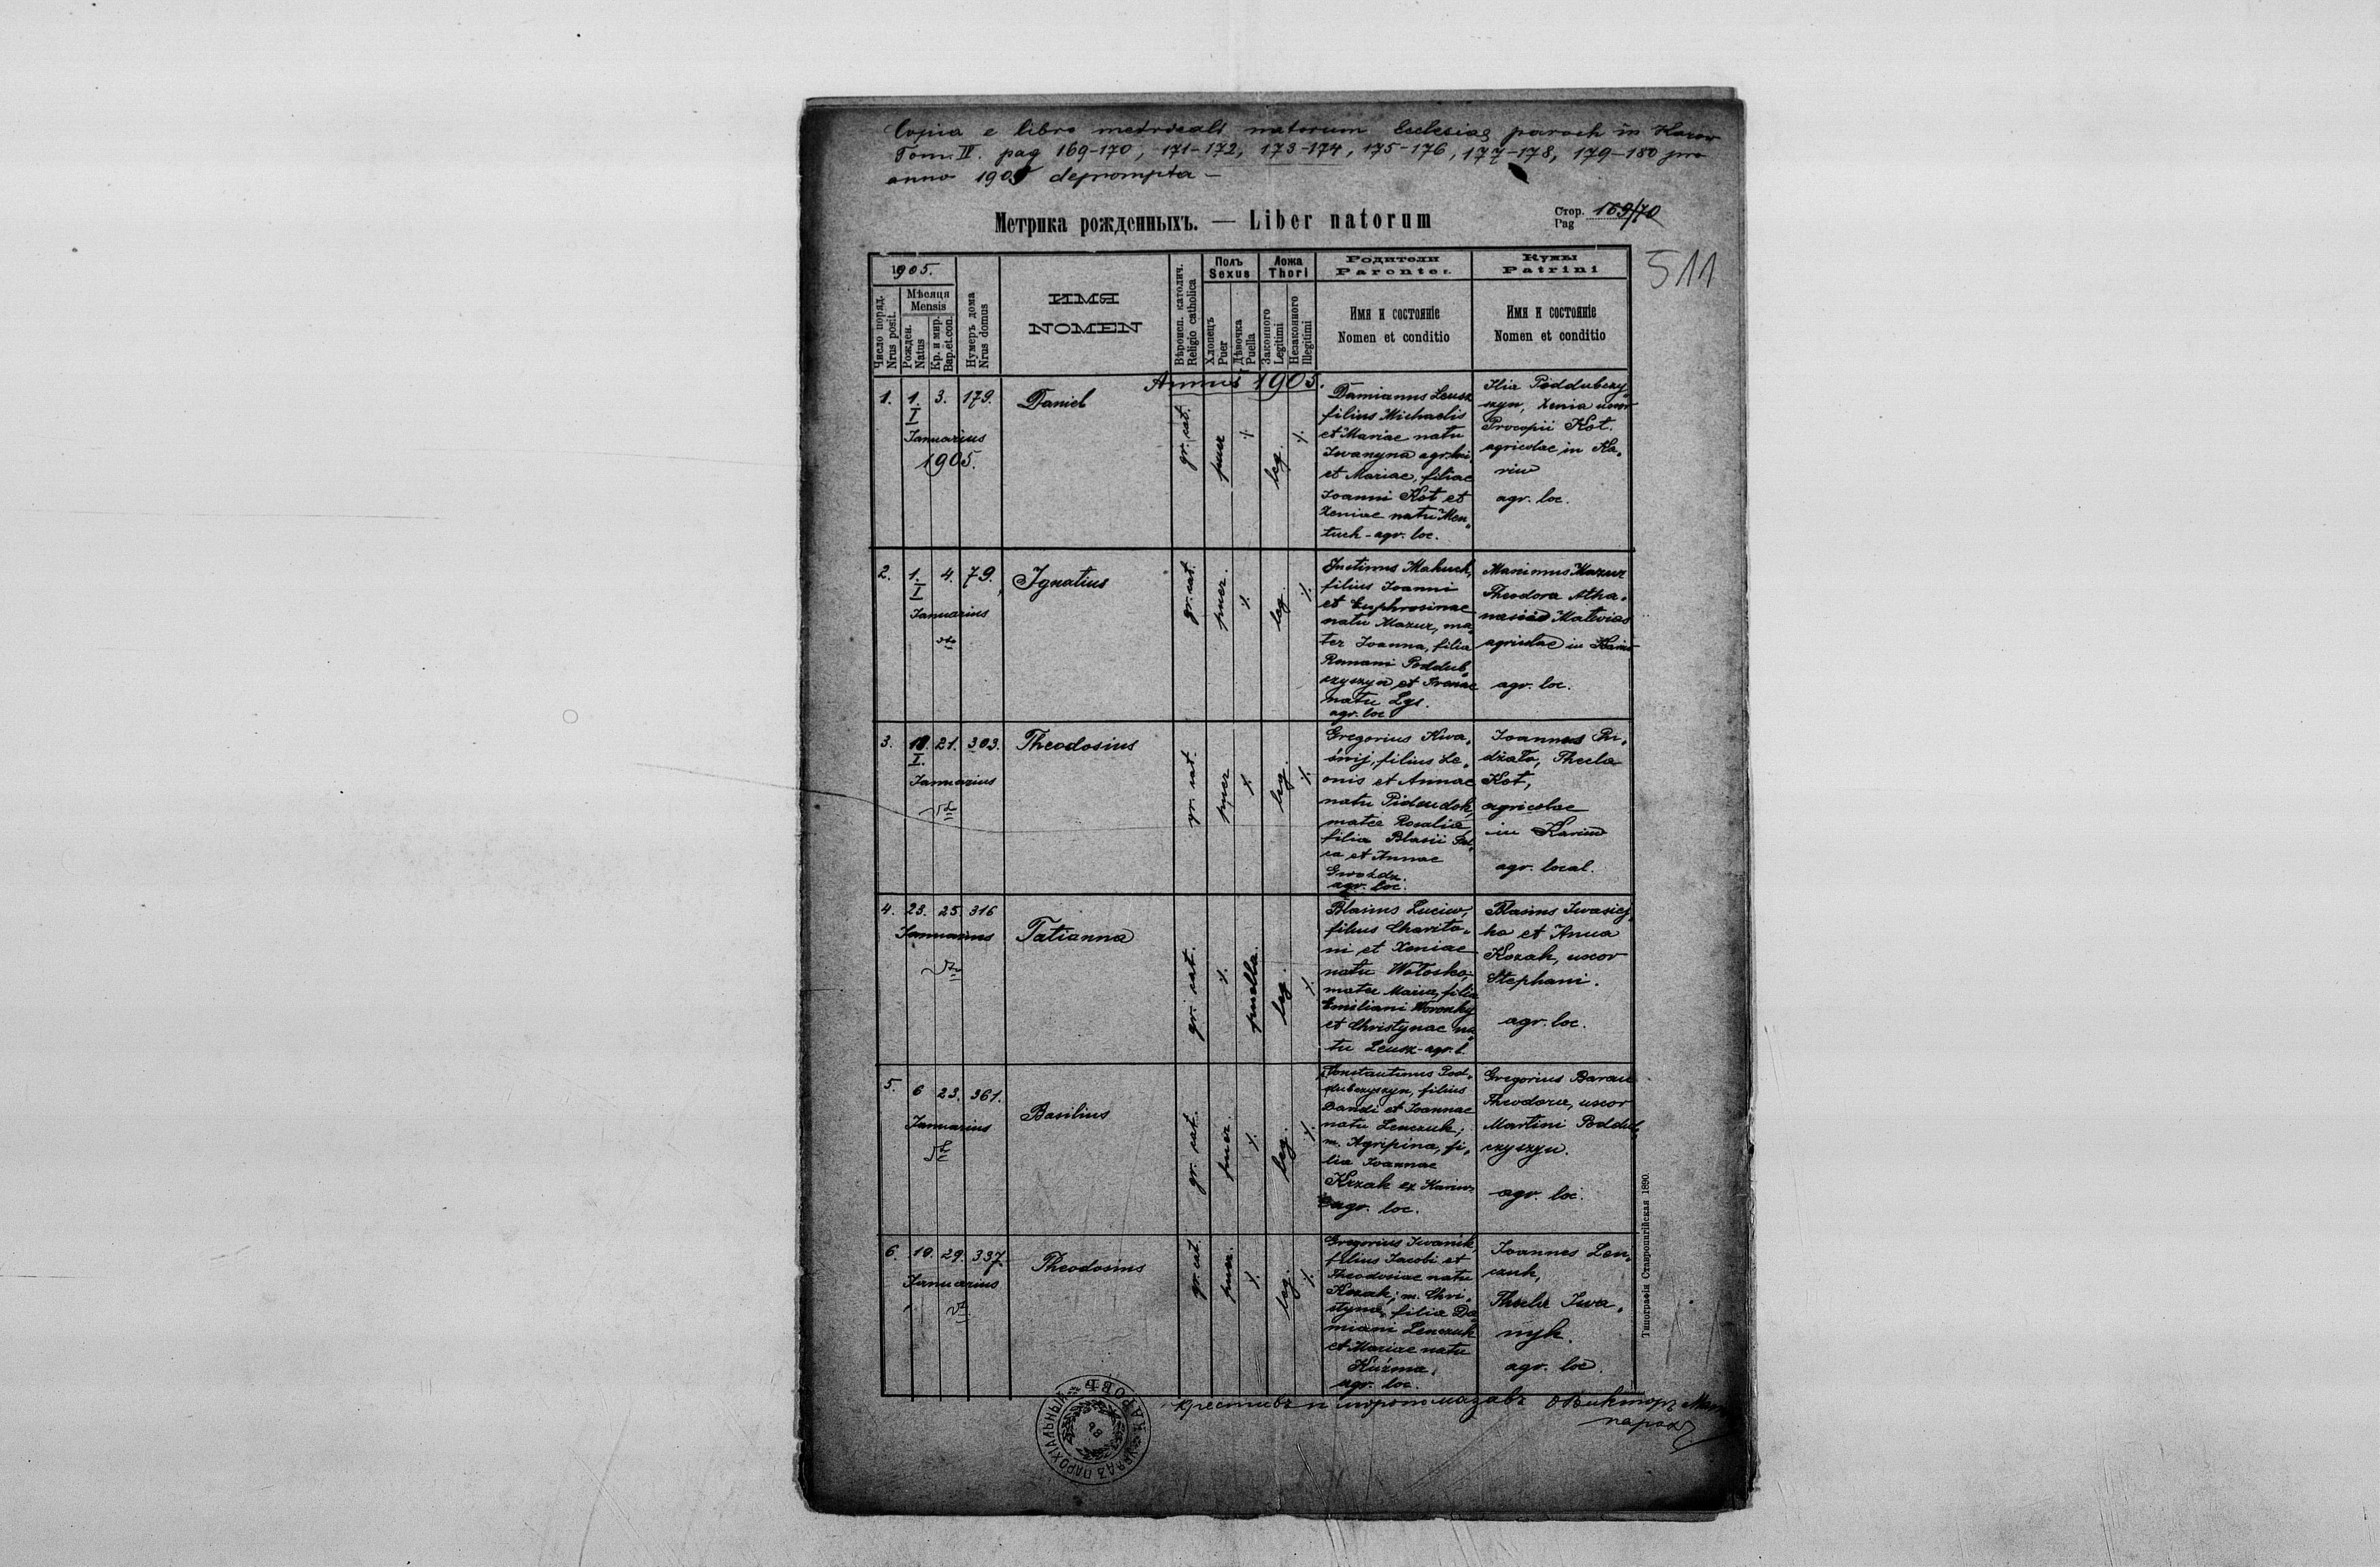 Copia e libro metricali natorum Ecclesiae paroch in Karow
Tom. IV. pag 169-170, 171-172, 173-174, 175-176, 177-178, 179-180 pro
anno 1905 deprompta –
Метрика рожденныхъ. — Liber natorum
Стор. 169/70
Pag
511
1905.
Число поряд.
Nrus posit.
Мѣсяця
Mensis
Рожден.
Natus
Кр. и мир.
Bap. et. con.
Нумеръ дома
Nrus domus
ИМЯ
NOMEN
Вѣроисп. католич.
Religio catholica
Полъ
Sexus
Хлопецъ
Puer
Дѣвочка
Puella
Ложа
Thori
Законного
Legitimi
Незаконного
Illegitimi
Родители
Parentes
Имя и состояніе
Nomen et conditio
Кумы
Patrini
Имя и состояніе
Nomen et conditio
Annus 1905.
1. 1. 3. 179. Daniel
I
Januarius
1905.
gr. cat. puer leg.
Damianus Leusz
filius Michaelis
et Mariae natu
Iwanyna
et Mariae, filiae
Joanni Kot et
Xeniae natu Men„
tuch - agr. loc.
Ilia Poddubczy„
szyn, Xenia uxor
Procopii Kot.
agricolae in Ka„
riw
agr. loc.
2. 1. 4. 79. Ignatius
I
Januarius
gr. cat. puer. leg.
Justinus Makuch,
filius Joanni
et Euphrosinae
natu Mazur, ma„
ter Joanna, filia
Romani Poddub„
czyszyn et
natu Lys.
agr. loc.
Maximus Mazur
Theodora Atha„
nasii
agricolae in
agr. loc.
3. 18. 21. 303. Theodosius
I.
Januarius
gr. cat. puer leg.
Gregorius Kwa„
śnij, filius Le„
onis et Annae
natu
mater Rosalia,
filia Blasii
et Annae
Gwoźdz.
agr. loc.
Joannes
Thecla
Kot,
agricolae
in Kariw
agr. local.
4. 23. 25. 316 Tatianna
Januarius
gr. cat. puella. leg.
Blasius Luciw,
filius Charito„
ni et Xeniae
natu Wołosko;
mater Maria, filia
Emiliani
et Christynae na„
tu Leusz - agr. l.
Blasius
et Anna
Kozak, uxor
Stephani.
agr. loc.
5. 6 23. 361. Basilius
Januarius
gr. cat. puer. leg.
Constantinus Pod„
dubczyszyn, filius
et Joannae
natu Lenczuk;
m. Agripina, fi„
lia Joannae
Krzak ex Kariw
agr. loc.
Gregorius Baran
Theodora, uxor
Martini Poddub„
czyszyn.
agr. loc.
6. 19. 29. 337. Theodosius
Januarius
gr. cat. puer. leg.
Gregorius Iwanik,
filius Jacobi et
Theodosiae natu
Kozak; m. Chri„
styna, filia Da„
miani Lenczuk
et Mariae natu
Kuźma.
agr. loc.
Joannes Len„
czuk,
Thecla Iwa„
nyk.
agr. loc.
Типографія Ставропигійская 1890.
крестивъ и миропомазавъ о Викторъ
парох
УРЯДЪ ПАРОХІАЛЬНЫЙ
КАРОВЪ